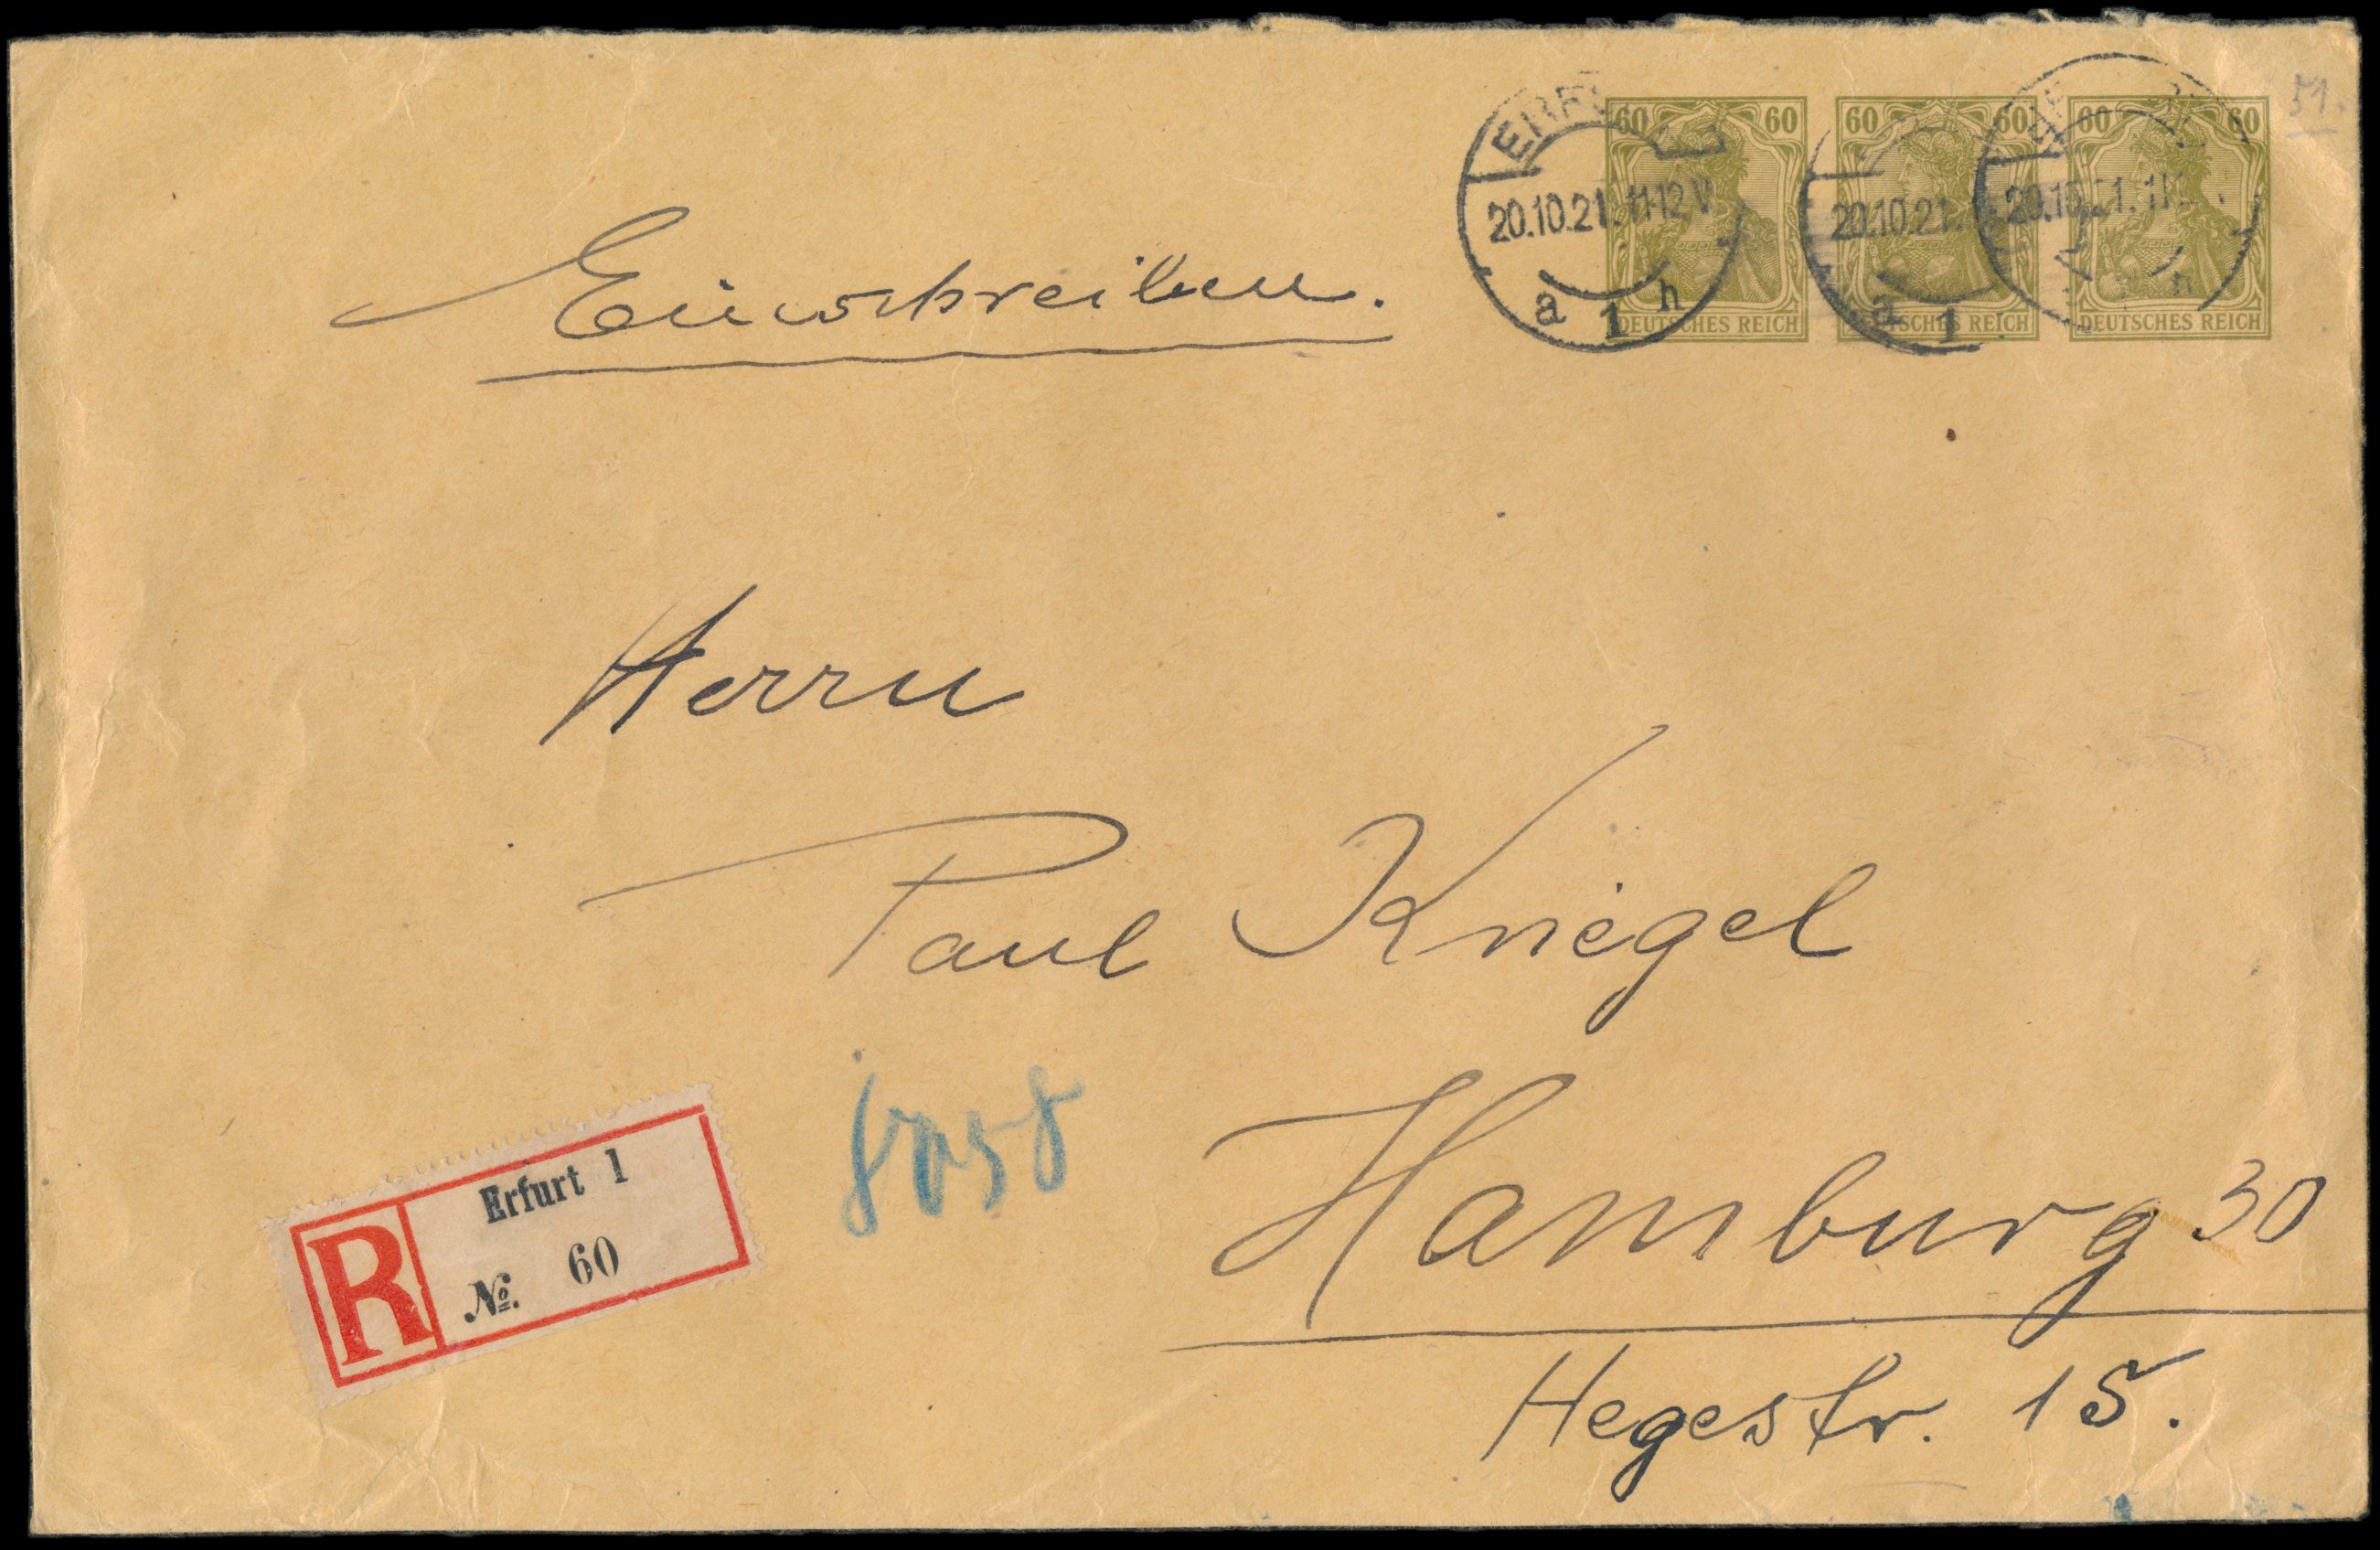 60 60 60 60 60 60
51.
ERFURT
20.10.21. 11-12 V
20.10.21.
20.10.21. 11
a 1 h
a 1
h
DEUTSCHES REICH DEUTSCHES REICH DEUTSCHES REICH
Einschreiben.
Herrn
Paul Kriegel
8058
Hamburg 30
Hegestr. 15.
R
Erfurt 1
№. 60